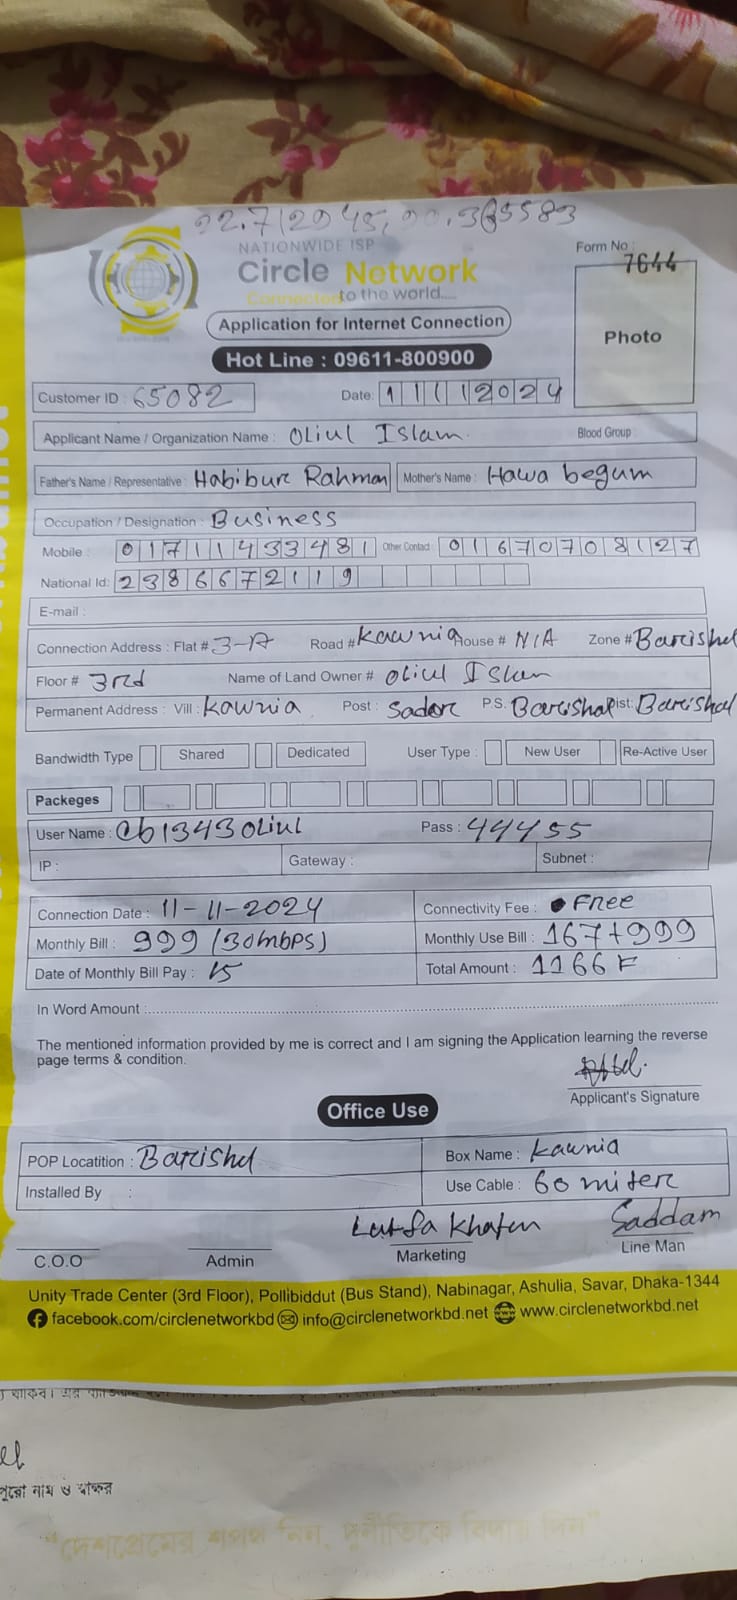 22.712945, 90.365583
NATIONWIDE ISP
Circle Network
Connected to the world....
Form No :
7644
Photo
Application for Internet Connection
Hot Line : 09611-800900
Customer ID : 65082
Date: 11112024
Applicant Name / Organization Name : Oliul Islam. Blood Group :
Father's Name / Representative : Habibur Rahman Mother's Name : Hawa begum
Occupation / Designation : Business
Mobile : 01711433481 Other Contact : 01670708127
National Id: 2386672119
E-mail :
Connection Address : Flat # 3-A Road # Kawnia House # N/A Zone # Barishal
Floor # 3rd Name of Land Owner # Oliul Islam
Permanent Address : Vill : Kawnia Post : Sador P.S. Barishal Dist: Barishal
Bandwidth Type Shared Dedicated User Type : New User Re-Active User
Packeges
User Name : Cb1343Oliul Pass : 44455
IP : Gateway : Subnet :
Connection Date : 11-11-2024 Connectivity Fee : Free
Monthly Bill : 999 (30mbps) Monthly Use Bill : 167+999
Date of Monthly Bill Pay : 15 Total Amount : 1166
In Word Amount :
The mentioned information provided by me is correct and I am signing the Application learning the reverse
page terms & condition.
Applicant's Signature
Office Use
POP Locatition : Barishal Box Name : Kawnia
Installed By : Use Cable : 60 miter
Lutfa Khatun Saddam
C.O.O Admin Marketing Line Man
Unity Trade Center (3rd Floor), Pollibiddut (Bus Stand), Nabinagar, Ashulia, Savar, Dhaka-1344
facebook.com/circlenetworkbd info@circlenetworkbd.net www.circlenetworkbd.net
পুরো নাম ও স্বাক্ষর
"দেশপ্রেমের শপথ নিন, দুর্নীতিকে বিদায় দিন"